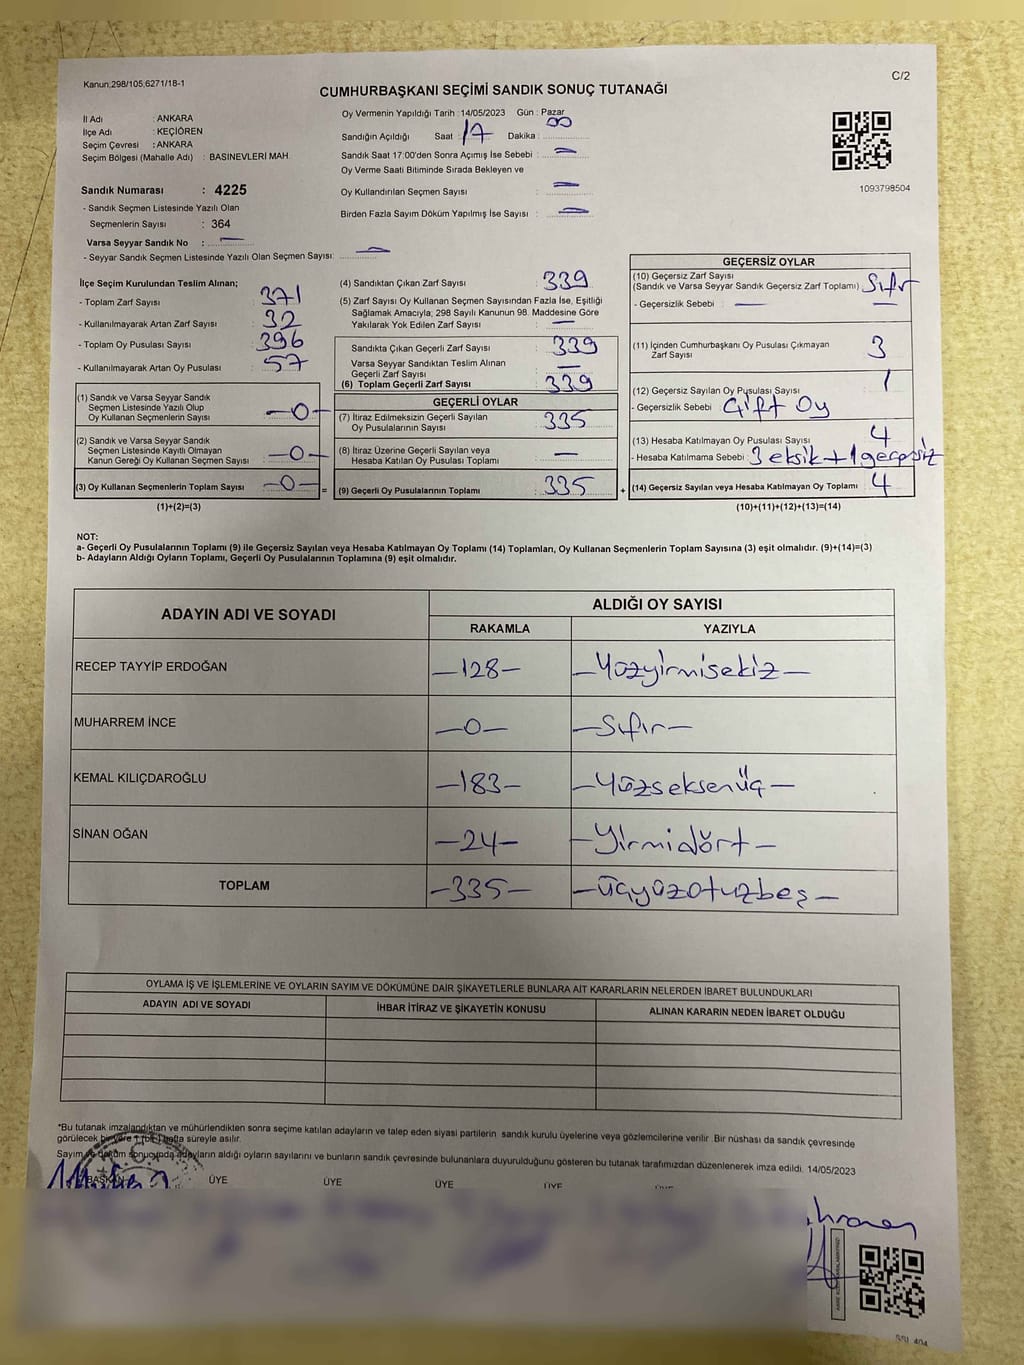 Kanun;298/105,6271/18-1
C/2
CUMHURBAŞKANI SEÇİMİ SANDIK SONUÇ TUTANAĞI
İl Adı : ANKARA
İlçe Adı : KEÇİÖREN
Seçim Çevresi : ANKARA
Seçim Bölgesi (Mahalle Adı) : BASINEVLERİ MAH.
Sandık Numarası : 4225
- Sandık Seçmen Listesinde Yazılı Olan
Seçmenlerin Sayısı : 364
Varsa Seyyar Sandık No : —
- Seyyar Sandık Seçmen Listesinde Yazılı Olan Seçmen Sayısı: —
Oy Vermenin Yapıldığı Tarih : 14/05/2023 Gün : Pazar
Sandığın Açıldığı Saat : 17 Dakika : 00
Sandık Saat 17:00'den Sonra Açımış İse Sebebi : —
Oy Verme Saati Bitiminde Sırada Bekleyen ve
Oy Kullandırılan Seçmen Sayısı : —
Birden Fazla Sayım Döküm Yapılmış İse Sayısı : —
1093798504
İlçe Seçim Kurulundan Teslim Alınan;
- Toplam Zarf Sayısı : 371
- Kullanılmayarak Artan Zarf Sayısı : 32
- Toplam Oy Pusulası Sayısı : 396
- Kullanılmayarak Artan Oy Pusulası : 57
(1) Sandık ve Varsa Seyyar Sandık
Seçmen Listesinde Yazılı Olup
Oy Kullanan Seçmenlerin Sayısı : —0—
(2) Sandık ve Varsa Seyyar Sandık
Seçmen Listesinde Kayıtlı Olmayan
Kanun Gereği Oy Kullanan Seçmen Sayısı : —0—
(3) Oy Kullanan Seçmenlerin Toplam Sayısı : —0— =
(1)+(2)=(3)
(4) Sandıktan Çıkan Zarf Sayısı : 339
(5) Zarf Sayısı Oy Kullanan Seçmen Sayısından Fazla İse, Eşitliği
Sağlamak Amacıyla; 298 Sayılı Kanunun 98. Maddesine Göre
Yakılarak Yok Edilen Zarf Sayısı : —
Sandıkta Çıkan Geçerli Zarf Sayısı : 339
Varsa Seyyar Sandıktan Teslim Alınan
Geçerli Zarf Sayısı : —
(6) Toplam Geçerli Zarf Sayısı : 339
GEÇERLİ OYLAR
(7) İtiraz Edilmeksizin Geçerli Sayılan
Oy Pusulalarının Sayısı : 335
(8) İtiraz Üzerine Geçerli Sayılan veya
Hesaba Katılan Oy Pusulası Toplamı : —
(9) Geçerli Oy Pusulalarının Toplamı : 335 +
GEÇERSİZ OYLAR
(10) Geçersiz Zarf Sayısı
(Sandık ve Varsa Seyyar Sandık Geçersiz Zarf Toplamı) : Sıfır
- Geçersizlik Sebebi : —
(11) İçinden Cumhurbaşkanı Oy Pusulası Çıkmayan
Zarf Sayısı 3
(12) Geçersiz Sayılan Oy Pusulası Sayısı : 1
- Geçersizlik Sebebi : Çift Oy
(13) Hesaba Katılmayan Oy Pusulası Sayısı : 4
- Hesaba Katılmama Sebebi : 3 eksik + 1 geçersiz
(14) Geçersiz Sayılan veya Hesaba Katılmayan Oy Toplamı : 4
(10)+(11)+(12)+(13)=(14)
NOT:
a- Geçerli Oy Pusulalarının Toplamı (9) ile Geçersiz Sayılan veya Hesaba Katılmayan Oy Toplamı (14) Toplamları, Oy Kullanan Seçmenlerin Toplam Sayısına (3) eşit olmalıdır. (9)+(14)=(3)
b- Adayların Aldığı Oyların Toplamı, Geçerli Oy Pusulalarının Toplamına (9) eşit olmalıdır.
ADAYIN ADI VE SOYADI
ALDIĞI OY SAYISI
RAKAMLA YAZIYLA
RECEP TAYYİP ERDOĞAN —128— —Yüzyirmisekiz—
MUHARREM İNCE —0— —Sıfır—
KEMAL KILIÇDAROĞLU —183— —Yüzseksenüç—
SİNAN OĞAN —24— —Yirmidört—
TOPLAM —335— —Üçyüzotuzbeş—
OYLAMA İŞ VE İŞLEMLERİNE VE OYLARIN SAYIM VE DÖKÜMÜNE DAİR ŞİKAYETLERLE BUNLARA AİT KARARLARIN NELERDEN İBARET BULUNDUKLARI
ADAYIN ADI VE SOYADI İHBAR İTİRAZ VE ŞİKAYETİN KONUSU ALINAN KARARIN NEDEN İBARET OLDUĞU
*Bu tutanak imzalandıktan ve mühürlendikten sonra seçime katılan adayların ve talep eden siyasi partilerin sandık kurulu üyelerine veya gözlemcilerine verilir. Bir nüshası da sandık çevresinde
görülecek bir yere 1 (bir) hafta süreyle asılır.
Sayım ve döküm sonucunda adayların aldığı oyların sayılarını ve bunların sandık çevresinde bulunanlara duyurulduğunu gösteren bu tutanak tarafımızdan düzenlenerek imza edildi. 14/05/2023
BAŞKAN ÜYE ÜYE ÜYE ÜYE
T.C.